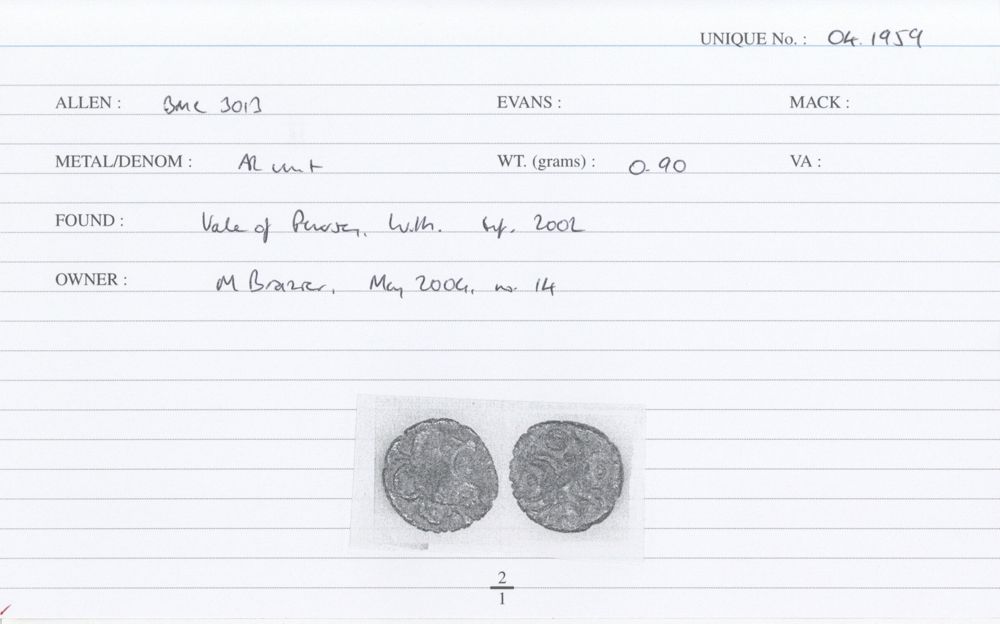 UNIQUE No. : 04.1959
ALLEN : BMC 3013 EVANS : MACK :
METAL/DENOM : AR unit WT. (grams) : 0.90 VA :
FOUND : Vale of 2002
OWNER : M Brazier, May 2004, no. 14
2
1